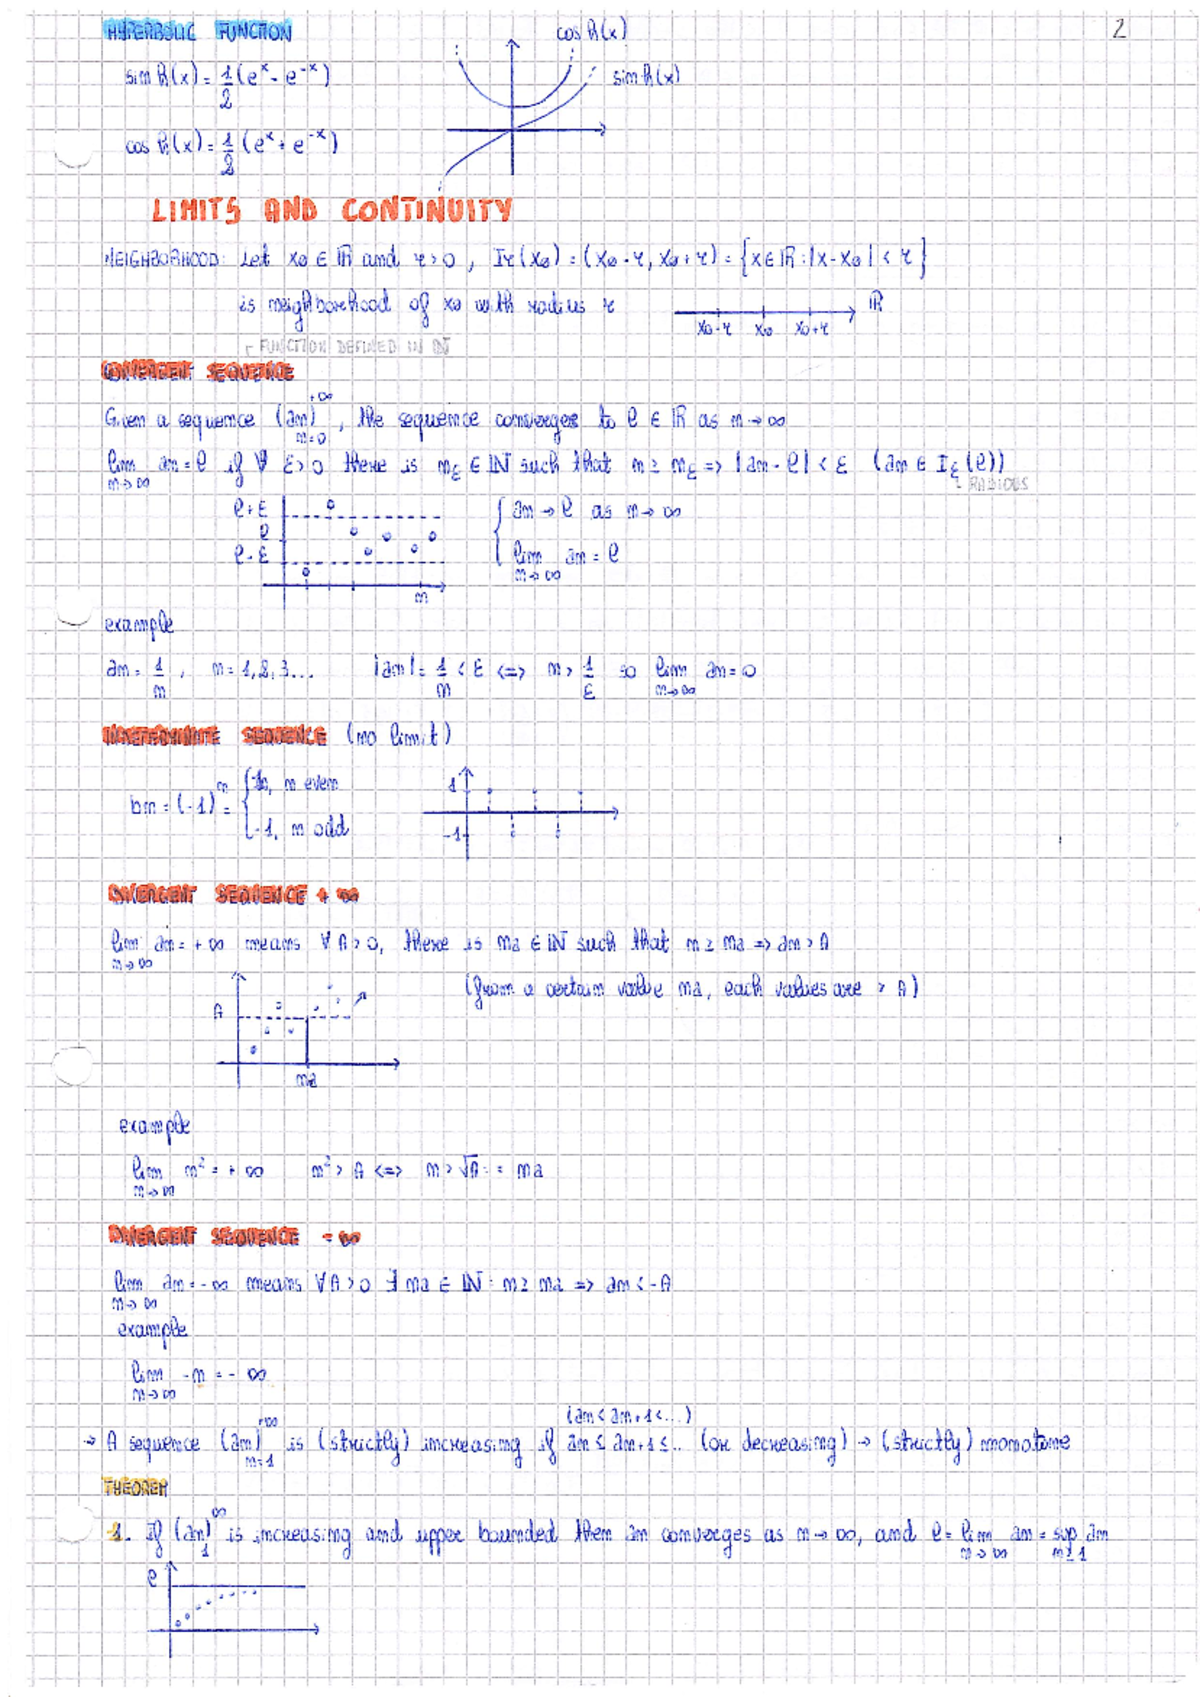 HYPERBOLIC FUNCTION
2
cosh(x)
sinh(x) = 1/2 (e^x - e^-x)
sinh(x)
cosh(x) = 1/2 (e^x + e^-x)
LIMITS AND CONTINUITY
NEIGHBORHOOD: Let x0 ∈ ℝ and r > 0, Ir(x0) = (x0 - r, x0 + r) = {x ∈ ℝ : |x - x0| < r}
is neighborhood of x0 with radius r
ℝ
x0-r x0 x0+r
FUNCTION DEFINED IN ℕ
CONVERGENT SEQUENCE
Given a sequence (an)_{n=0}^{+∞}, the sequence converges to ℓ ∈ ℝ as n → ∞
lim_{n→∞} an = ℓ if ∀ ε > 0 there is nε ∈ ℕ such that n ≥ nε => |an - ℓ| < ε (an ∈ Iε(ℓ))
RADIUS
ℓ+ε
ℓ
ℓ-ε
n
{ an → ℓ as n → ∞
lim_{n→∞} an = ℓ
example
an = 1/n, n = 1,2,3... |an| = 1/n < ε <=> n > 1/ε so lim_{n→∞} an = 0
INDETERMINATE SEQUENCE (no limit)
bn = (-1)^n = { 1, n even
-1, n odd
1
-1
DIVERGENT SEQUENCE +∞
lim_{n→∞} an = +∞ means ∀ A > 0, there is na ∈ ℕ such that n ≥ na => an > A
(from a certain value na, each values are > A)
A
na
example
lim_{n→∞} n² = +∞ n² > A <=> n > √A := na
DIVERGENT SEQUENCE -∞
lim_{n→∞} an = -∞ means ∀ A > 0 ∃ na ∈ ℕ : n ≥ na => an < -A
example
lim_{n→∞} -n = -∞
(an < an+1 < ...)
→ A sequence (an)_{n=1}^{+∞} is (strictly) increasing if an ≤ an+1 ≤ .. (or decreasing) → (strictly) monotone
THEOREM
1. If (an)_1^∞ is increasing and upper bounded then an converges as n → ∞, and ℓ = lim_{n→∞} an = sup_{n≥1} an
ℓ